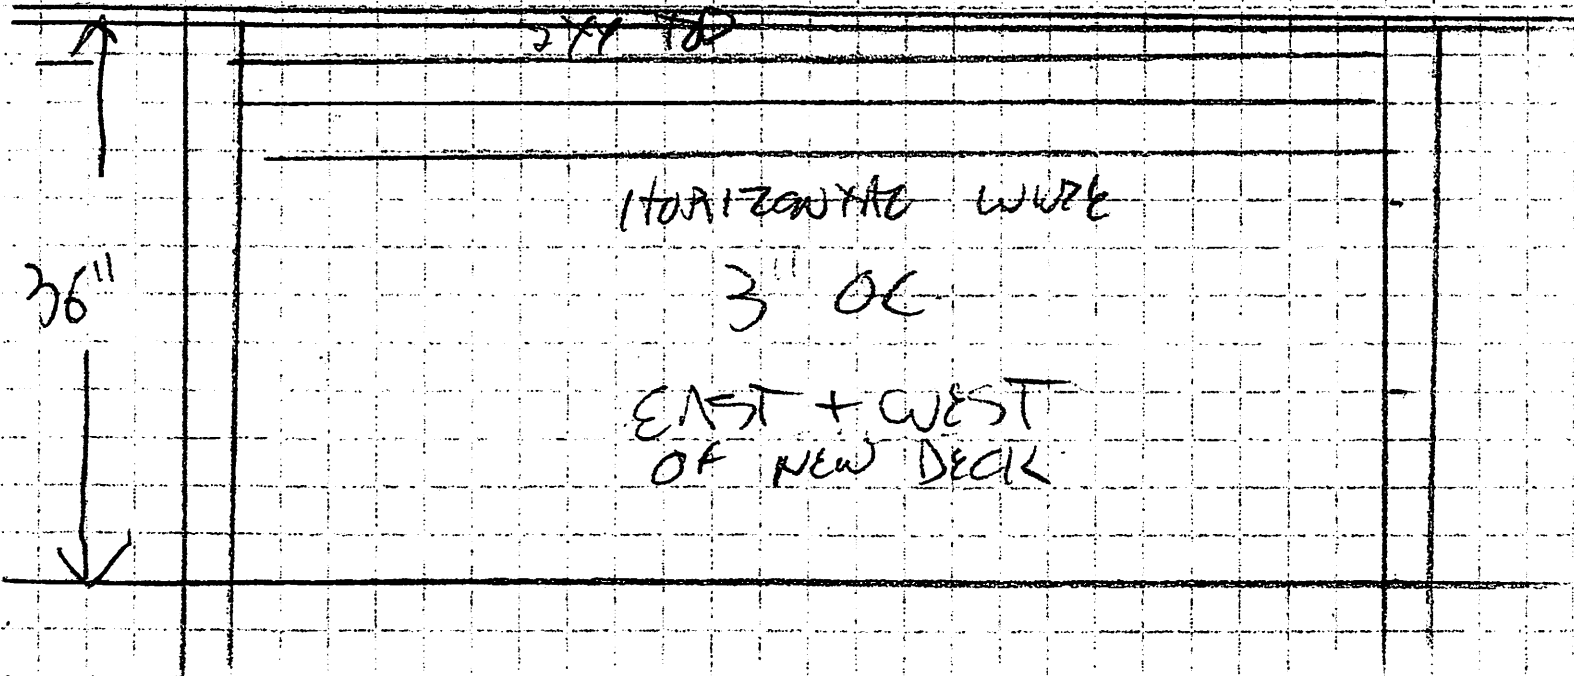 2X4 TOP
HORIZONTAL WIRE
36"
3" OC
EAST + WEST
OF NEW DECK